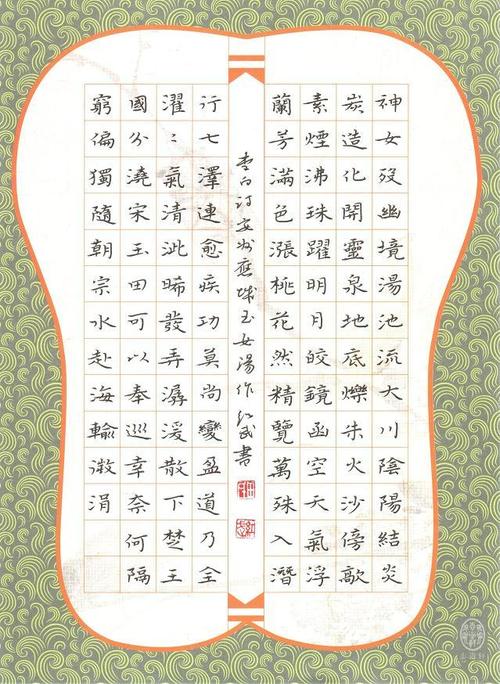 神女歿幽境湯池流大川陰陽結炎
炭造化開靈泉地底爍朱火沙傍歊
素煙沸珠躍明月皎鏡函空天氣浮
蘭芳滿色漲桃花然精覽萬殊入潛
李白詩安州應城玉女湯作 武書
行七澤連愈疾功莫尚變盈道乃全
濯〻氣清泚晞發弄潺湲散下楚王
國分澆宋玉田可以奉巡幸奈何隔
窮偏獨隨朝宗水赴海輸微涓